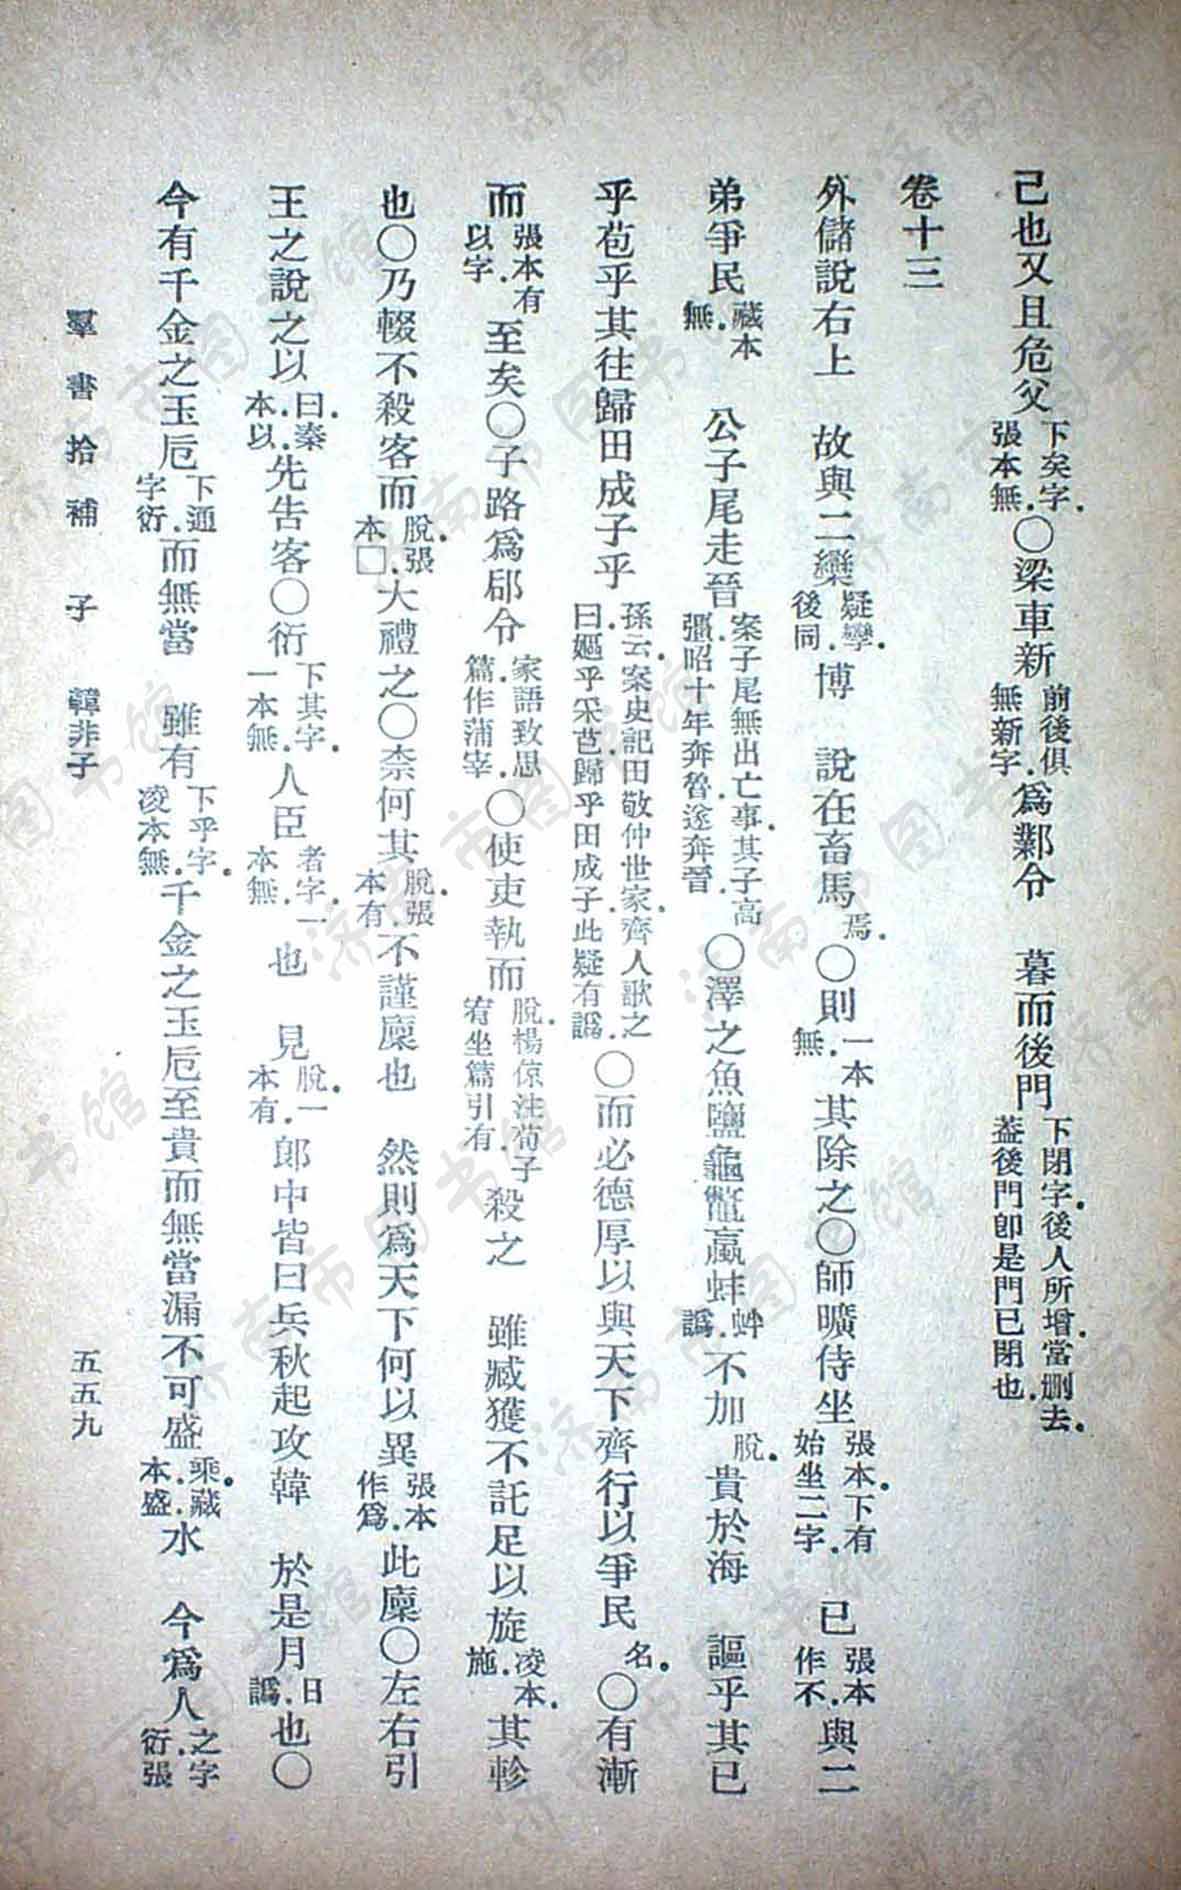 己也又且危父下矣字張本無○梁車新前後俱無新字爲鄴令　暮而後門下閉字後人所增當刪去蓋後門卽是門已閉也
卷十三
外儲說右上　故與二欒疑孿後同　博　說在畜馬焉○則一本無其除之○師曠侍坐張本下有始坐二字　已張本作不與二
弟爭民藏本無　公子尾走晉案子尾無出亡事其子高彊昭十年奔魯遂奔晉○澤之魚鹽龜鼈蠃蚌蚌譌不加脫　貴於海　謳乎其已
乎苞乎其往歸田成子乎孫云案史記田敬仲世家齊人歌之曰嫗乎采芑歸乎田成子此疑有譌○而必德厚以與天下齊行以爭民名○有漸
而張本有以字　至矣○子路爲郈令家語致思篇作蒲宰○使吏執而脫楊倞注荀子宥坐篇引有　殺之　雖臧獲不託足以旋凌本施　其軫
也○乃輟不殺客而脫張本□大禮之○柰何其脫張本有不謹廩也　然則爲天下何以異張本作爲此廩○左右引
王之說之以曰秦本以先告客○衍下其字一本無人臣者字一本無　也　見脫一本有郎中皆曰兵秋起攻韓　於是月日譌也○
今有千金之玉卮下通字衍而無當　雖有下乎字凌本無千金之玉卮至貴而無當漏不可盛乘藏本盛水　今爲人之字衍張
羣書拾補　子　韓非子　五五九
济南市图书馆